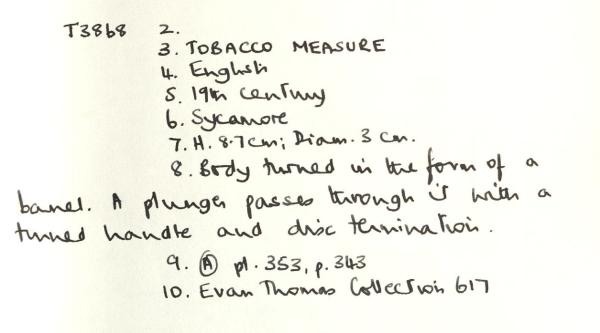 T3868 2.
3. TOBACCO MEASURE
4. English
5. 19th century
6. Sycamore
7. H. 8.7cm; Diam. 3 cm.
8. Body turned in the form of a
barrel. A plunger passes through it with a
turned handle and disc termination.
9. Ⓐ pl. 353, p. 343
10. Evan Thomas Collection 617